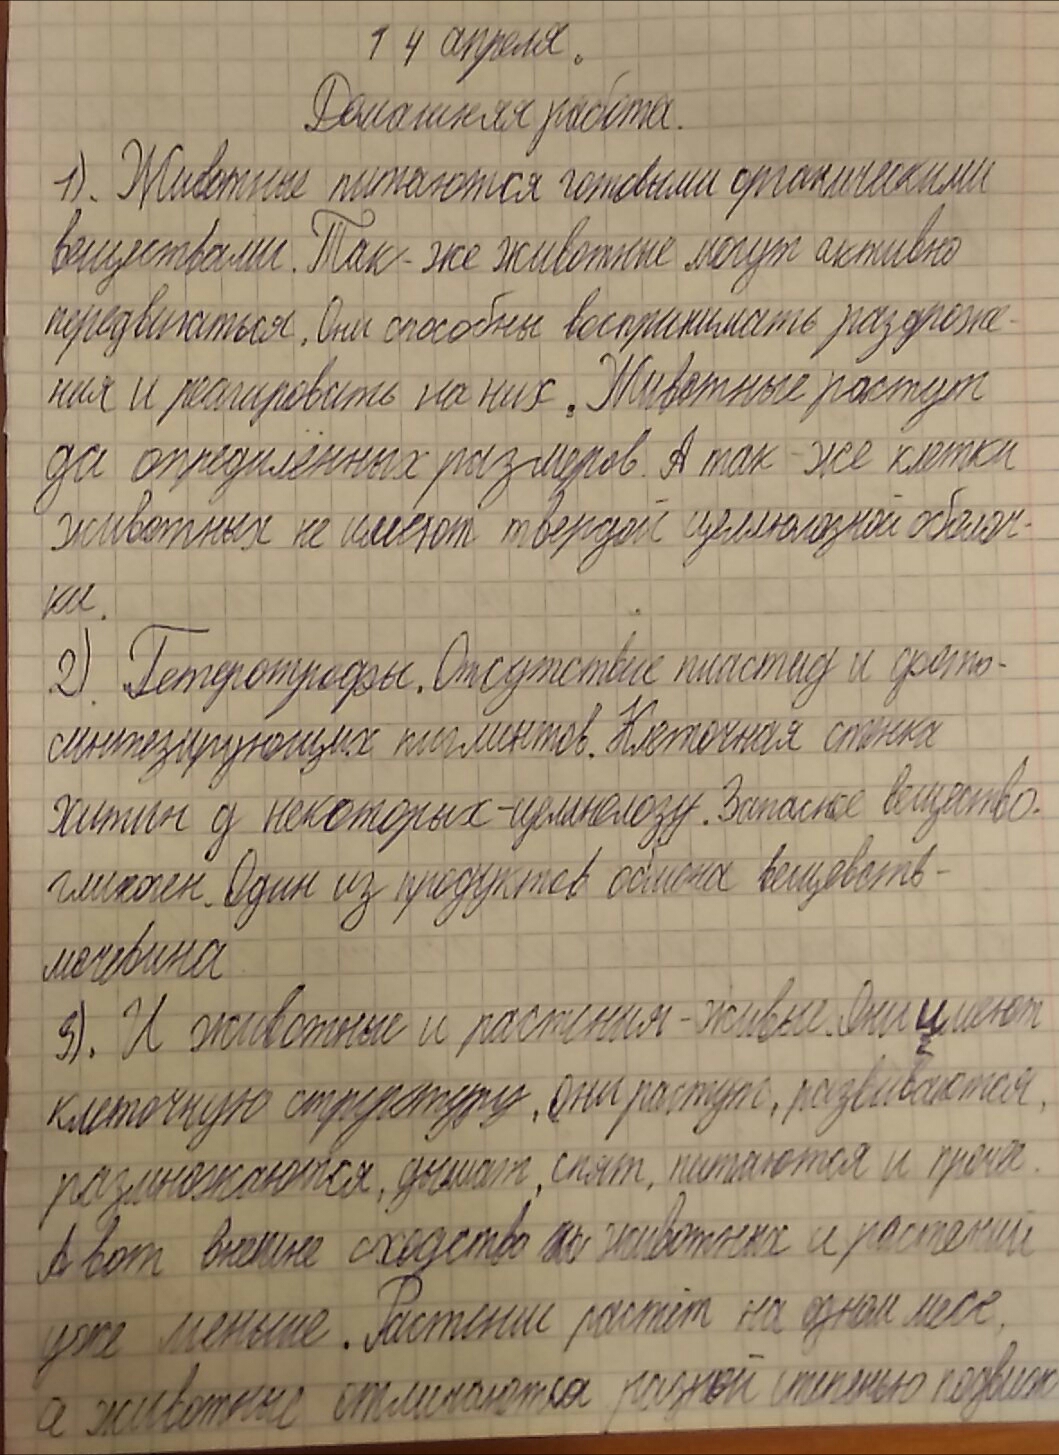 14 апреля.
Домашняя работа.
1). Животные питаются готовыми органическими
веществами. Так-же животные могут активно
передвигаться. Они способны воспринимать раздроже-
ния и реагировать на них. Животные растут
да определённых размеров. А так-же клетки
животных не имеют твердой целлюлозной оболоч-
ки.
2). Гетеротрофы. Отсутствие пластид и фото-
синтезирующих пигментов. Клеточная стенка
хитин у некоторых-целлюлозу. Запасное вещество-
гликоген. Один из продуктов обмена веществ-
мочевина
3). И животные и растения-живые. Они имеют
клеточную структуру, они растут, развиваются,
размножаются, дышат, спят, питаются и проча.
А вот внешне сходство животных и растений
уже меньше. Растении растёт на одном месе,
а животные отличаются разной степенью подвиж